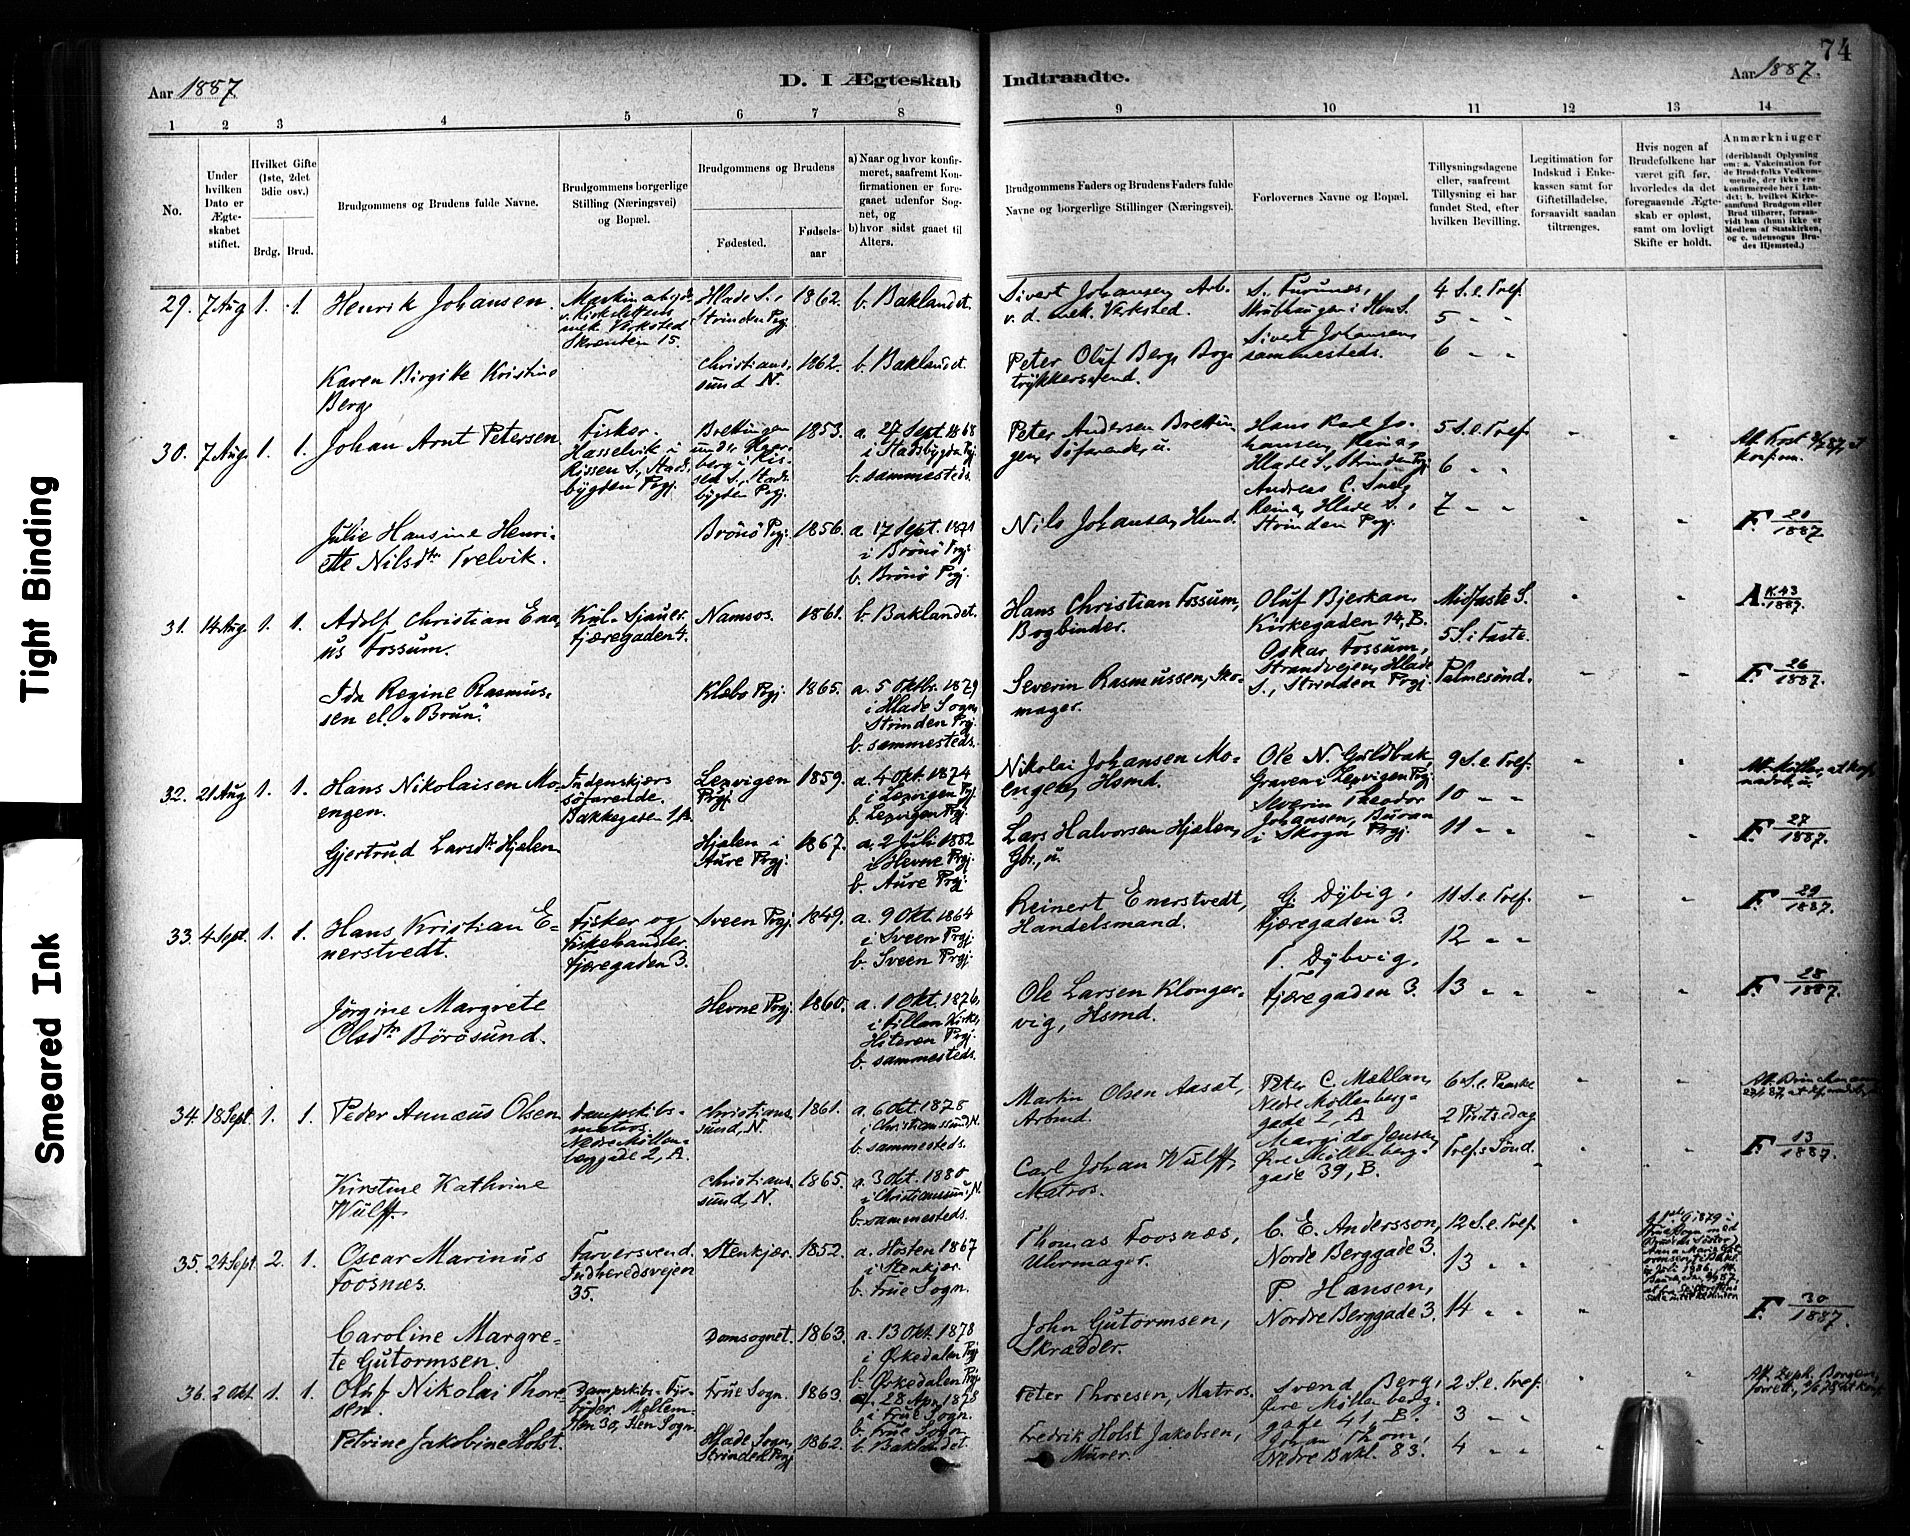 74
Aar 1887
D. I Ægteskab
Indtraadte.
Aar 1887.
1 2 3 4 5 6 7 8
9 10 11 12 13 14
No.
Under hvilken Dato er Ægteskabet stiftet.
Hvilket Gifte (1ste, 2det 3die osv.)
Brdg. Brud.
Brudgommens og Brudens fulde Navne.
Brudgommens borgerlige Stilling (Næringsvei) og Bopæl.
Brudgommens og Brudens
Fødested.
Fødselsaar
a) Naar og hvor konfirmeret, saafremt Konfirmationen er foregaaet udenfor Sognet, og
b) hvor sidst gaaet til Alters.
Brudgommens Faders og Brudens Faders fulde Navne og borgerlige Stillinger (Næringsvei).
Forlovernes Navne og Bopæl.
Tillysningsdagene eller, saafremt Tillysning ei har fundet Sted, efter hvilken Bevilling.
Legitimation for Indskud i Enkekassen samt for Giftetilladelse, forsaavidt saadan tiltrænges.
Hvis nogen af Brudefolkene har været gift før, hvorledes da det foregaaende Ægteskab er opløst, samt om lovligt Skifte er holdt.
Anmærkninger (deriblandt Oplysning om: a. Vakcination for de Brudefolks Vedkommende, der ikke er konfirmerede her i Landet; b. hvilket Kirkesamfund Brudgom eller Brud tilhører, forsaavidt han (hun) ikke er Medlem af Statskirken, og c. udensogns Brudes Hjemsted.)
29. 7 Aug 1. 1 Henrik Johansen.
v. Kirkslettens
mek. Verksted
Skrænten 15.
Hlade S.,
Strinden Prgj.
1862. b. Baklandet.
Sivert Johansen, Arb.
v. d. mek. Verksted.
S. Furunes,
Sivert Johansen
sammesteds.
4 S. e. Tref.
5 " "
6 " "
Karen Birgitte Kristine
Berg
Christians-
sund N.
1862. b. Baklandet.
Peter Oluf Berg, Bog-
trykkersvend.
30. 7 Aug. 1. 1. Johan Arnt Petersen
Fisker.
Hasselvik i
Rissen S., Stads-
bygden Prgj.
1853. a. 27 Sept. 1868
i Stadsbygden Prgj.
b. sammesteds.
Peter Andersen Brettin-
gen, Søfarende, u.
Hans Karl Jo-
hansen, Reina,
Hlade S., Strinden Prgj.
Andreas C.
Reina, Hlade S.,
Strinden Prgj.
5 S. e. Tref.
6 " "
7 " "
Julie Hansine Henri-
ette Nilsdtr Trelvik.
Brönö Prgj. 1856. a. 17 Sept. 1871
i Brönö Prgj.
b. Brönö Prgj.
Nils Johansen, Hsmd.
F. 20/1887
31. 14 Aug. 1. 1. Adolf Christian
Fossum.
Kul-Sjauer.
Fjæregaden 4.
Namsos. 1861. b. Baklandet.
Hans Christian Fossum,
Bogbinder.
Oluf Bjerkan,
Kirkegaden 14, B.
Oskar Fossum,
Strandvejen, Hlade
S., Strinden Prgj.
Midfaste S.
5 S. i Faste.
Palmesönd.
A. K.43/1887.
Ida Regine Rasmus-
sen el. "Brun".
Klæbo Prgj. 1865. a. 5 Oktbr. 1879
i Hlade Sogn,
Strinden Prgj.
b. sammesteds.
Severin Rasmussen, Sko-
mager.
F. 26/1887.
32. 21 Aug 1. 1. Hans Nikolaisen Mo-
engen.
Indenskjærs
söfarende.
Bakkegaden 1,
Lexvigen
Prgj.
1859. a. 4 Okt. 1874
i Lexvigen Prgj.
b. Lexvigen Prgj.
Nikolai Johansen Mo-
engen, Hsmd.
Ole N. Guldbak,
Graven i Lexvigen Prgj.
Severin Theodor
Johansen, Buran
i Skogn Prgj.
9 S. e. Tref.
10 " "
11 " "
Gjertrud Larsdtr Hjælen
Hjælen i
Aure Prgj.
1867. a. 2 Juli 1882
i Hevne Prgj.
b. Aure Prgj.
Lars Halvorsen Hjælen,
Gbr., u.
F. 27/1887.
33. 4 Sept. 1. 1. Hans Kristian E-
nerstvedt.
Fisker og
Fiskehandler.
Fjæregaden 3.
Sveen Prgj. 1849. a. 9 Okt. 1864
i Sveen Prgj.
b. Sveen Prgj.
Reinert Enerstvedt,
Handelsmand.
G. Dybvig,
Fjæregaden 3.
T. Dybvig,
Fjæregaden 3.
11 S. e. Tref.
12 " "
13 " "
F. 29/1887.
Jörgine Margrete
Olsdtr Börösund.
Hevne Prgj. 1860. a. 1 Okt. 1876
i Fillan Kirke,
Hiteren Prgj.
b. sammesteds.
Ole Larsen Klonger-
vig, Hsmd.
F. 28/1887.
34. 18 Sept. 1. 1. Peder Annæus Olsen
Dampskibs-
matros.
Nedre Möllen-
berggade 2, A.
Christians-
sund, N.
1861. a. 6 Okt. 1878
i Christianssund, N.
b. sammesteds.
Martin Olsen Aasat,
Arbmd.
Peter C. Mæhlan,
Nedre Möllenberg-
gade 2, A
Margido Jensen,
Övre Möllenberg-
gade 39, B.
6 S. e. Paaske
2 Pintsedag
Tref. Sönd.
Kirstine Kathrine
Wulff.
Christians-
sund, N.
1865. a. 3 Okt. 1880
i Christianssund, N.
b. sammesteds.
Carl Johan Wulff,
Matros.
F. 13/1887.
35. 24 Sept. 2. 1. Oscar Marinus
Foosnæs.
Farversvend.
Indheredsvejen
35.
Stenkjær. 1852. a. Hösten 1867
i Stenkjær.
b. Frue Sogn.
Thomas Foosnæs,
Uhrmager.
C. E. Andersson,
Nordre Berggade 3.
P. Hansen,
Nordre Berggade 3.
12 S. e. Tref.
13 " "
14 " "
Caroline Margre-
te Gutormsen.
Domsognet. 1863. a. 13 Okt. 1878
i Ørkedalen Prgj.
b. Ørkedalen Prgj.
John Gutormsen,
Skrædder.
F. 30/1887.
36. 2 Okt. 1. 1. Oluf Nikolai Thore-
sen.
Dampskibs-Fyr-
böder.
Frue Sogn. 1863. a. 28 Apr. 1878
i Frue Sogn.
b. Frue Sogn.
Peter Thoresen, Matros.
Svend Berg,
Övre Möllenberg-
gade 41, B.
Johan Thom,
Nedre Bakl. 83.
2 S. e. Tref.
3 " "
4 " "
Petrine Jakobine Holst.
Hlade Sogn,
Strinden Prgj.
1862. b. Baklandet.
Fredrik Holst Jakobsen,
Murer.
Tight Binding
Smeared Ink